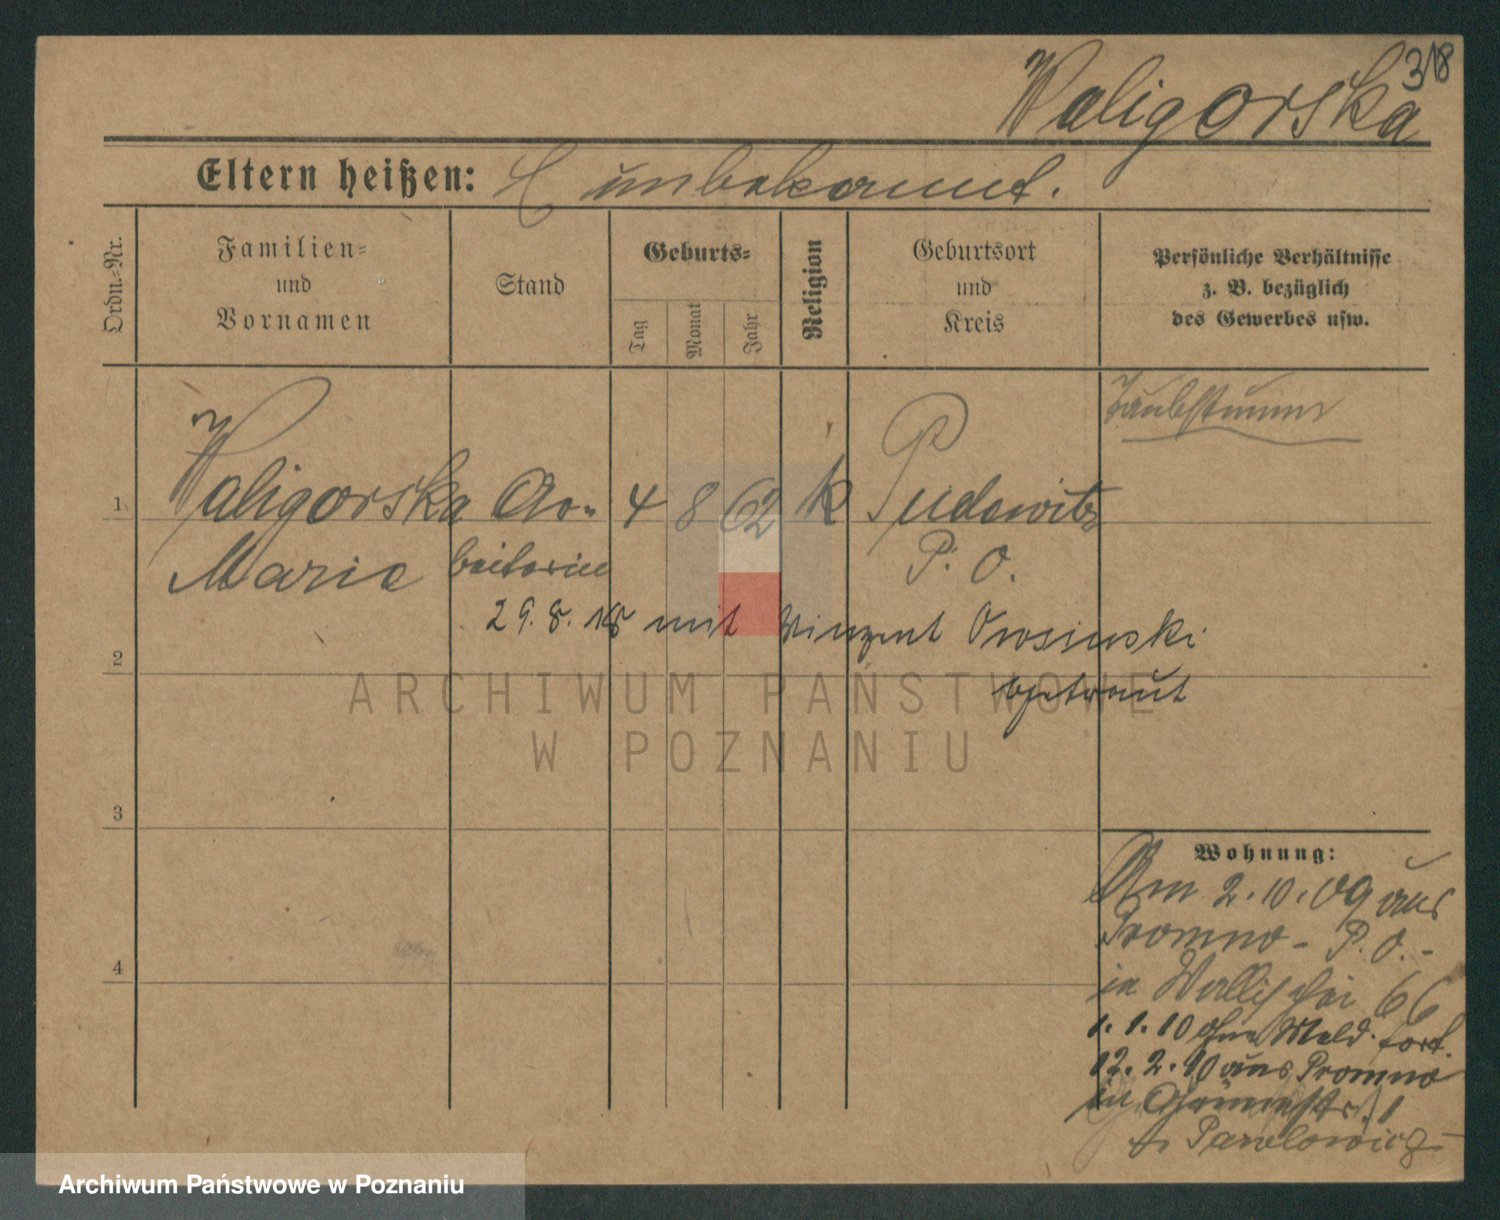 318
Waligorska
Eltern heißen: unbekannt.
Ordn.-Nr.
Familien-
und
Vornamen
Stand
Geburts-
Tag
Monat
Jahr
Religion
Geburtsort
und
Kreis
Persönliche Verhältnisse
z. B. bezüglich
des Gewerbes usw.
Taubstumm
1 Waligorska Ar- 4 8 62 k Pudewitz
Marie beiterin P. O.
29. 8. 18 mit Vinzent Orosinski
2
getraut
ARCHIWUM PAŃSTWOWE
W POZNANIU
3
Wohnung:
Am 2. 10. 09 aus
Promno - P. O. -
4
in Wallischei 66
1. 1. 10 ohne Meld. fort.
12. 2. 10 aus Promno
in
b. Pawlowicz
Archiwum Państwowe w Poznaniu